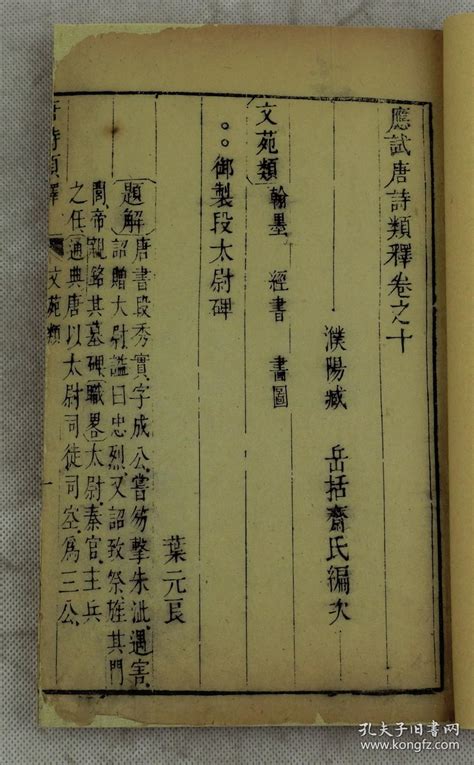 應試唐詩類釋卷之十
濮陽臧　岳括齋氏編次
文苑類　翰墨　經書　書圖
御製段太尉碑
葉元良
題解唐書段秀實字成公嘗笏擊朱泚遇害
詔贈大尉諡曰忠烈又詔致祭旌其門
閭帝製銘其墓碑職畧太尉秦官主兵
之任通典唐以太尉司徒司空為三公
唐詩類釋　文苑類
孔夫子旧书网
www.kongfz.com